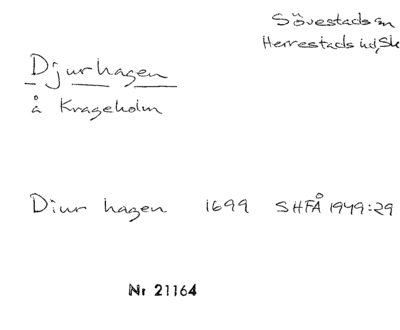 Sövestads sn
Herrestads hd, Sk
Djurhagen
å Krageholm
Diur hagen 1699 SHFÅ 1949:29
Nr 21164